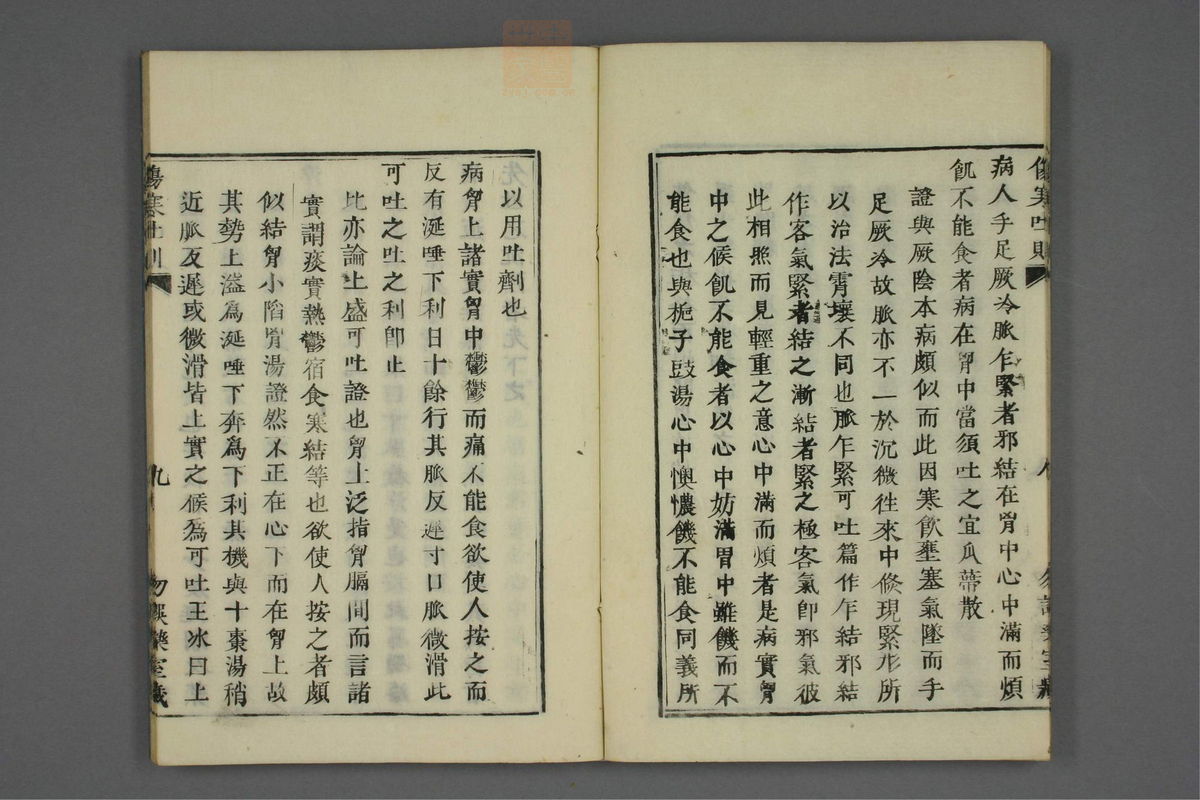 傷寒吐則
八
病人手足厥冷脈乍緊者邪結在胷中心中滿而煩
飢不能食者病在胷中當須吐之宜瓜蔕散
證與厥陰本病頗似而此因寒飮壅塞氣墜而手
足厥冷故脈亦不一於沉微徃來中倏現緊形所
以治法霄壤不同也脈乍緊可吐篇作乍結邪結
作客氣緊者結之漸結者緊之極客氣卽邪氣彼
此相照而見輕重之意心中滿而煩者是病實胷
中之候飢不能食者以心中妨滿胃中雖饑而不
能食也與梔子豉湯心中懊憹饑不能食同義所
先以用吐劑也
病胷上諸實胷中鬱鬱而痛不能食欲使人按之而
反有涎唾下利日十餘行其脈反遲寸口脈微滑此
可吐之吐之利卽止
此亦論上盛可吐證也胷上泛指胷膈間而言諸
實謂痰實熱鬱宿食寒結等也欲使人按之者頗
似結胷小陷胷湯證然不正在心下而在胷上故
其勢上溢爲涎唾下奔爲下利其機與十棗湯稍
近脈反遲或微滑皆上實之候爲可吐王冰曰上
傷寒吐則
九
勿誤藥室藏